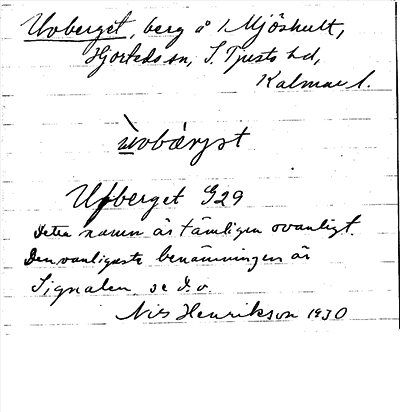 Uvberget, berg å 1 Mjöshult,
Hjorteds sn, S. Tjusts hd,
Kalmar l.
ùvbærjət
Ufberget G29
Detta namn är tämligen ovanligt.
Den vanligaste benämningen är
Signalen, se d. o.
Nils Henrikson 1930